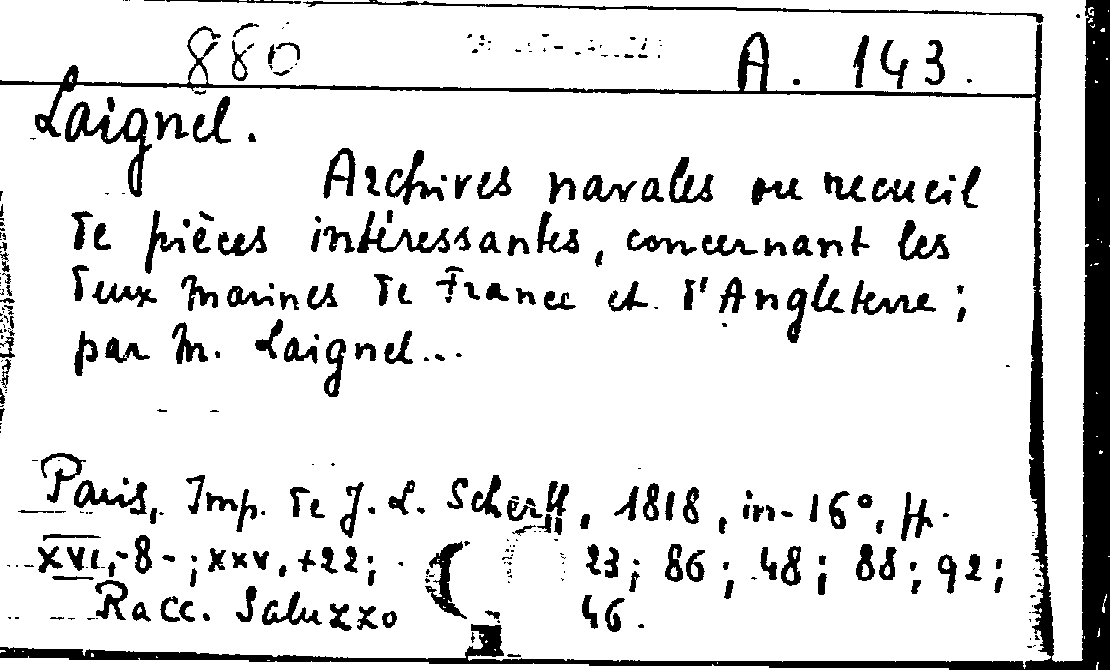 880 A. 143.
Laignel.
Archives navales ou recueil
de pièces intéressantes, concernant les
deux marines de France et d'Angleterre;
par M. Laignel...
Paris, Imp. de J. L. Scherff, 1818, in-16°, ff.
XVI,-8-; XXV, +22; 23; 86; 48; 88; 92;
Racc. Saluzzo 46.